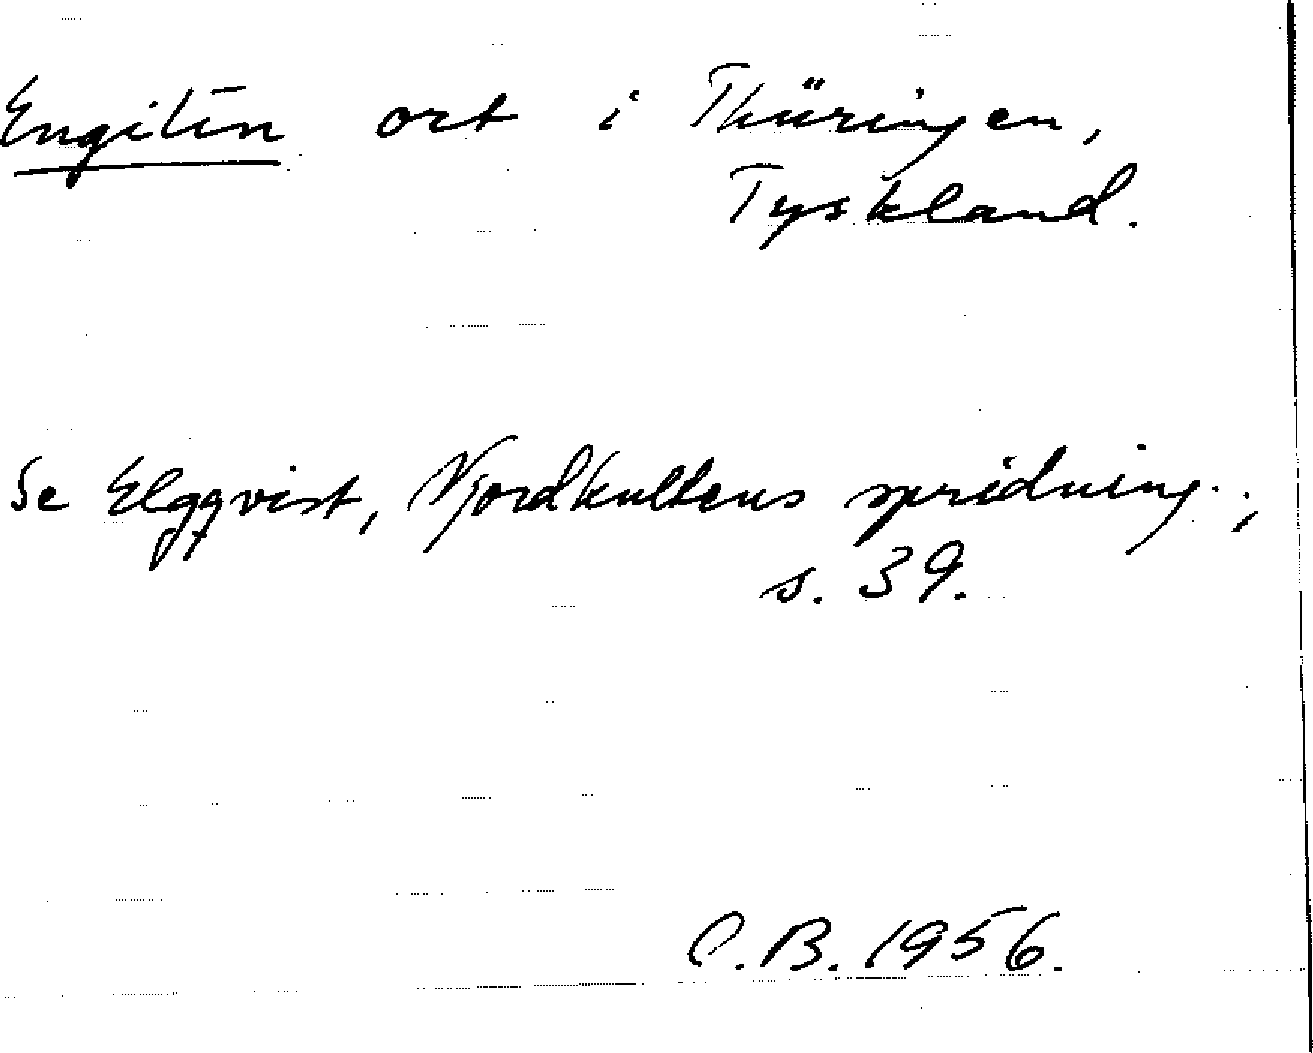 Engilin ort i Thüringen,
Tyskland.
Se Elgqvist, Njordkultens spridning.,
s. 39.
C.B. 1956.